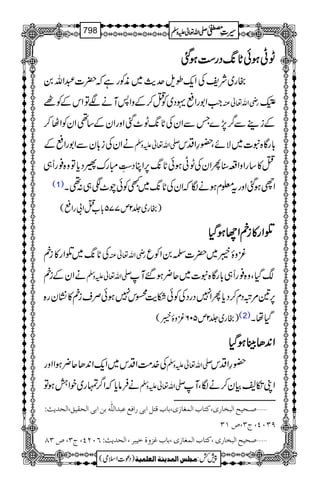 سیرتِ مصطفیٰ صلی اللہ تعالیٰ علیہ وسلم 798
ٹوٹی ہوئی ٹانگ درست ہو گئی
بخاری شریف کی ایک طویل حدیث میں مذکور ہے کہ حضرت عبداللہ بن
عتیک رضی اللہ تعالیٰ عنہ جب ابورافع یہودی کو قتل کر کے واپس آنے لگے تو اس کے کوٹھے کے
زینے سے گر پڑے جس سے ان کی ٹانگ ٹوٹ گئی اور ان کے ساتھی ان کو اٹھا کر
بارگاہِ نبوت میں لائے، حضورِ اقدس صلی اللہ تعالیٰ علیہ وسلم نے ان کی زبان سے ابورافع کے
قتل کا سارا واقعہ سنا پھر ان کی ٹوٹی ہوئی ٹانگ پر اپنا دستِ مبارک پھیر دیا تو وہ فوراً ہی
اچھی ہو گئی اور یہ معلوم ہونے لگا کہ ان کی ٹانگ میں کبھی کوئی چوٹ لگی ہی نہیں تھی۔(1)
(بخاری جلد۲ ص۵۷۷ باب قتل ابی رافع)
تلوار کا زخم اچھا ہو گیا
غزوۂ خیبر میں حضرت سلمہ بن اکوع رضی اللہ تعالیٰ عنہ کی ٹانگ میں تلوار کا زخم
لگ گیا، وہ فوراً ہی بارگاہِ نبوت میں حاضر ہو گئے آپ صلی اللہ تعالیٰ علیہ وسلم نے ان کے زخم پر
تین مرتبہ دم کر دیا پھر انہیں درد کی کوئی شکایت محسوس نہیں ہوئی صرف زخم کا نشان رہ
گیا تھا۔(2) (بخاری جلد۲ ص۶۰۵ غزوۂ خیبر)
اندھا بینا ہو گیا
حضورِ اقدس صلی اللہ تعالیٰ علیہ وسلم کی خدمتِ اقدس میں ایک اندھا حاضر ہوا اور
اپنی تکالیف بیان کرنے لگا، آپ صلی اللہ تعالیٰ علیہ وسلم نے فرمایا کہ اگر تمہاری خواہش ہو تو
صحیح البخاری،کتاب المغازی،باب قتل ابی رافع عبداللہ بن ابی الحقیق،الحدیث:
۴۰۳۹، ج۳، ص ۳۱
صحیح البخاری ،کتاب المغازی ،باب غزوۃ خیبر ، الحدیث: ۴۲۰۶، ج۳، ص ۸۳
پیش کش: مجلس المدینۃ العلمیۃ (دعوتِ اسلامی)